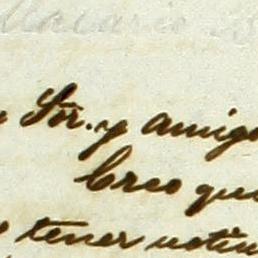 Sor. y amigo
Creo que
tener noti